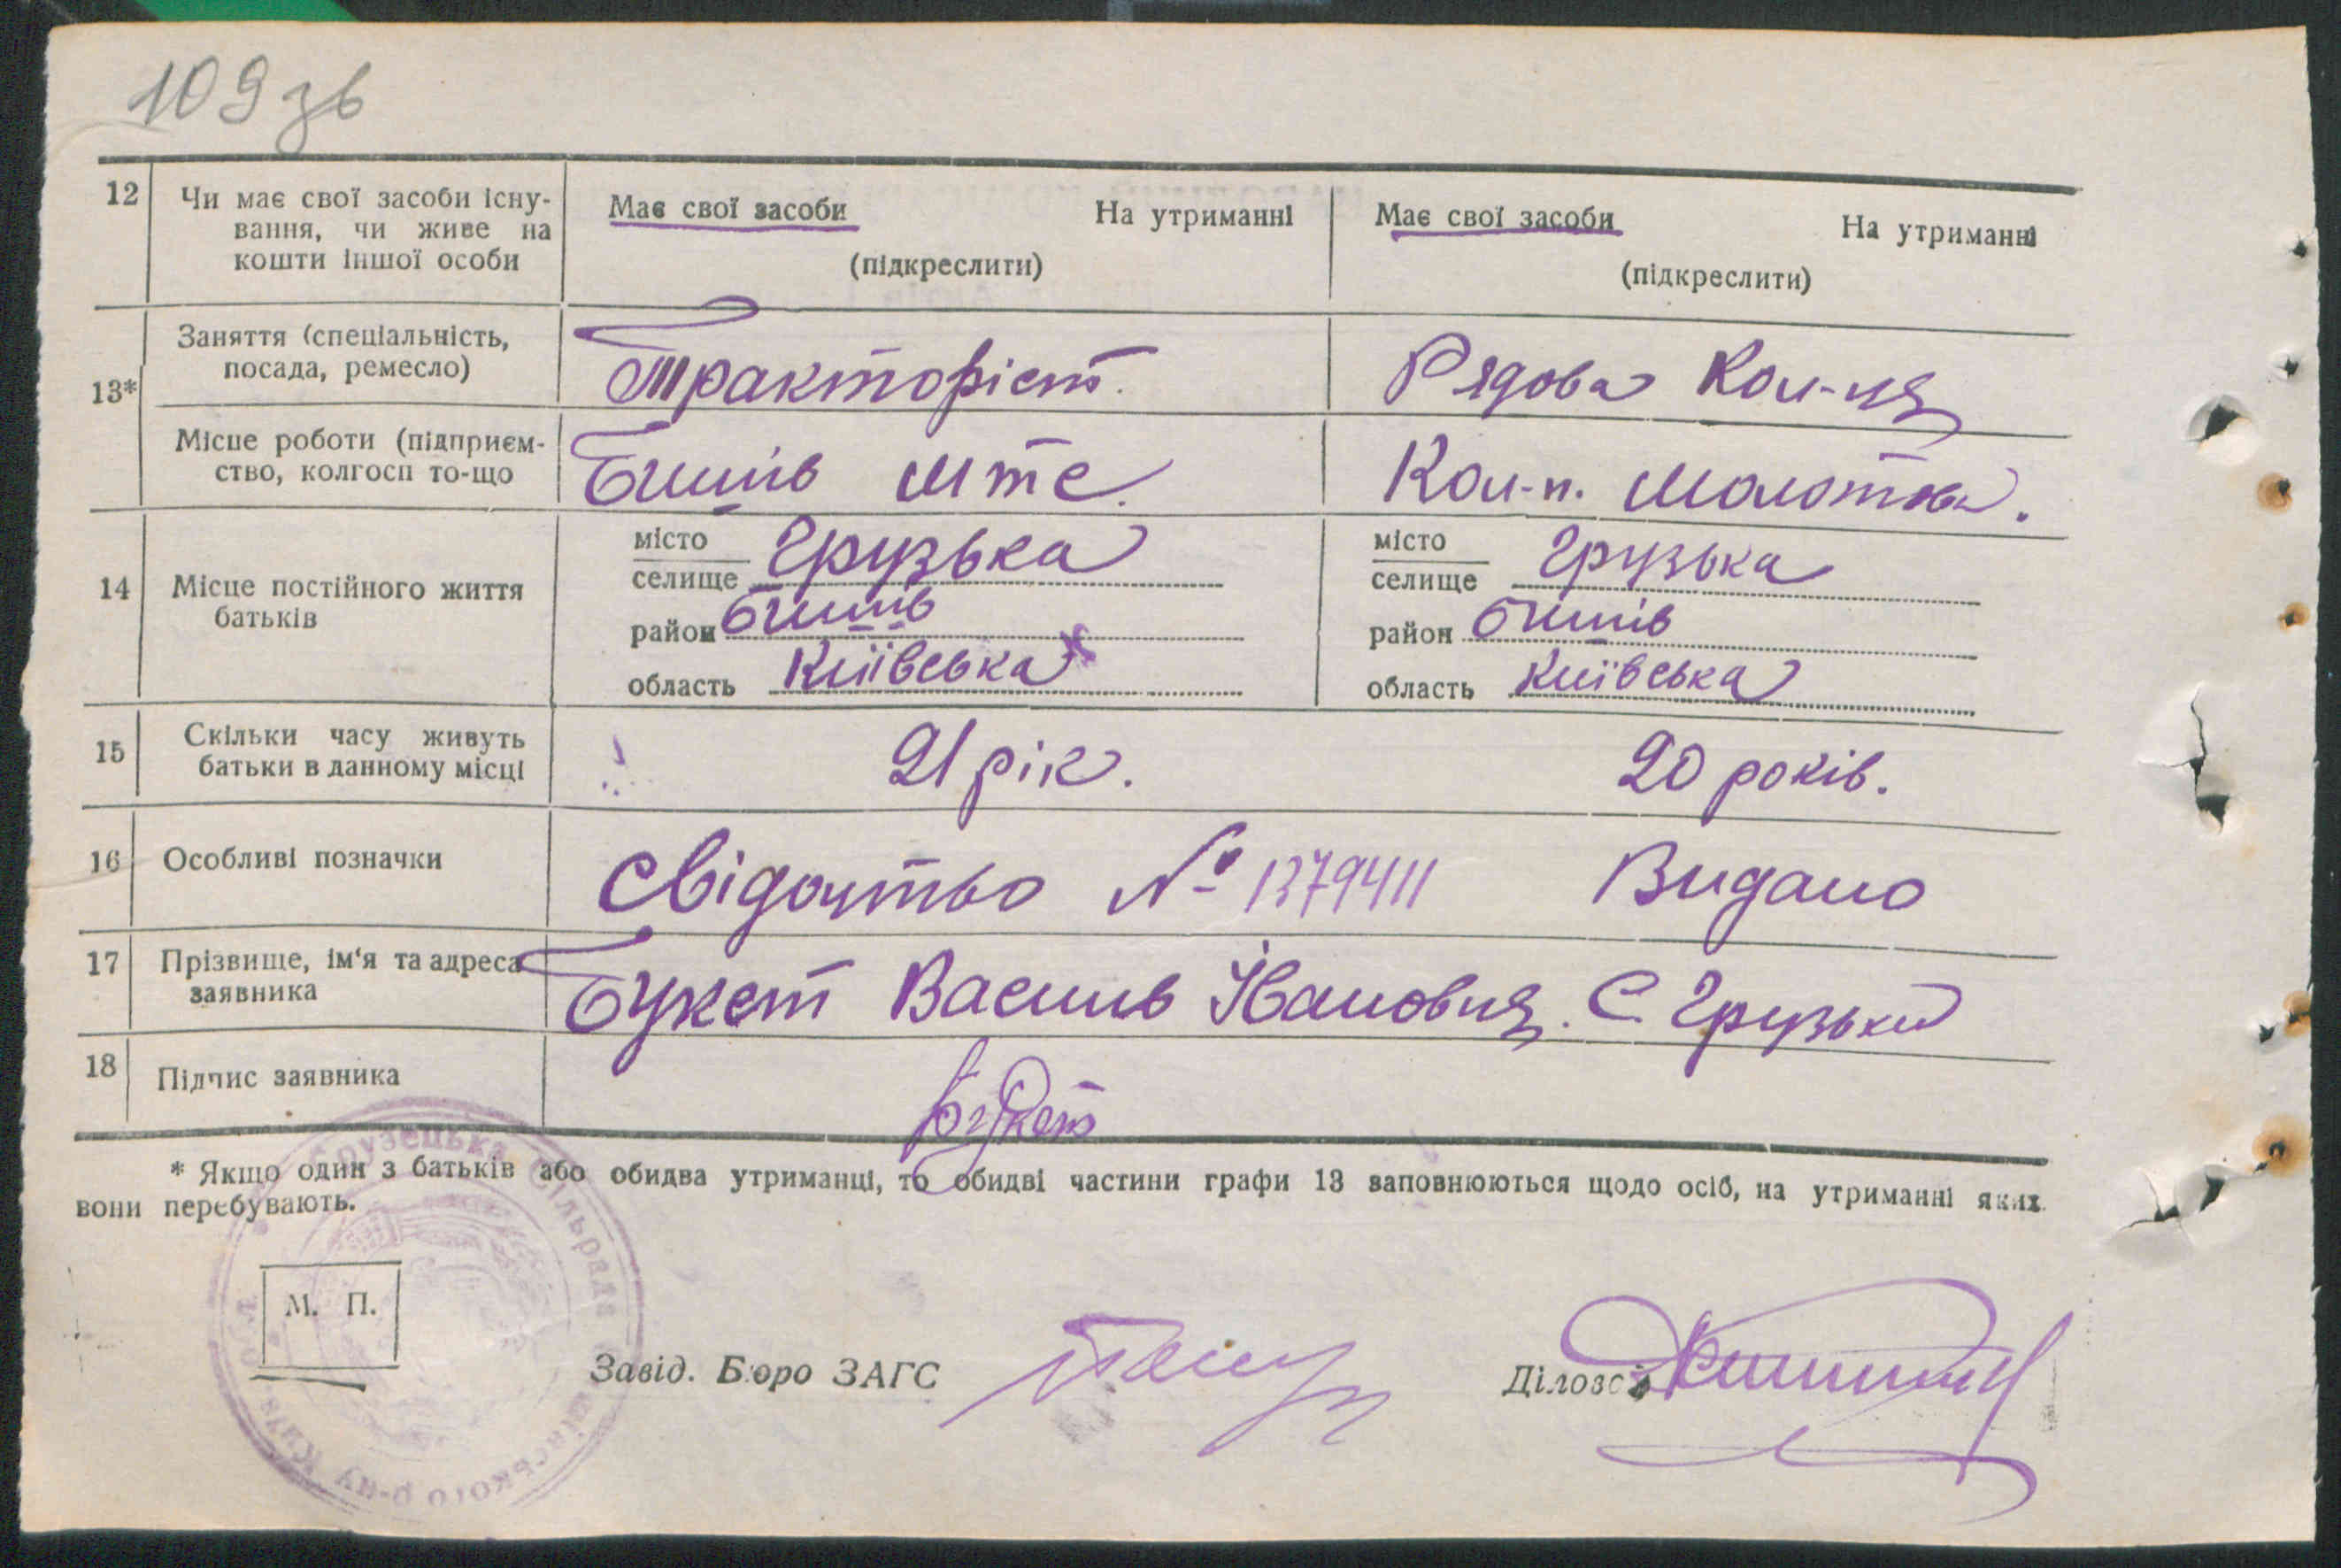 109 зв
12 Чи має свої засоби існу-
вання, чи живе на
кошти іншої особи
Має свої засоби На утриманні
(підкреслити)
Має свої засоби На утриманні
(підкреслити)
13*
Заняття (спеціальність,
посада, ремесло)
Тракторіст.
Рядова Кол-ця
Місце роботи (підприєм-
ство, колгосп то-що
Бишів мтс.
Кол-п. Молотова.
14 Місце постійного життя
батьків
місто
селище Грузька
район Бишів
область Київська
місто
селище Грузька
район Бишів
область Київська
15 Скільки часу живуть
батьки в данному місці
21 рік.
20 років.
16 Особливі позначки
Свідоцтво № 1379411 Видано
17 Прізвище, ім'я та адреса
заявника
Букет Василь Іванович. С. Грузьке
18 Підпис заявника
Букет
* Якщо один з батьків або обидва утриманці, то обидві частини графи 13 заповнюються щодо осіб, на утриманні яких
вони перебувають.
Грузецька Сільрада
р-ну Київ. обл.
М. П.
Завід. Бюро ЗАГС
Діловод